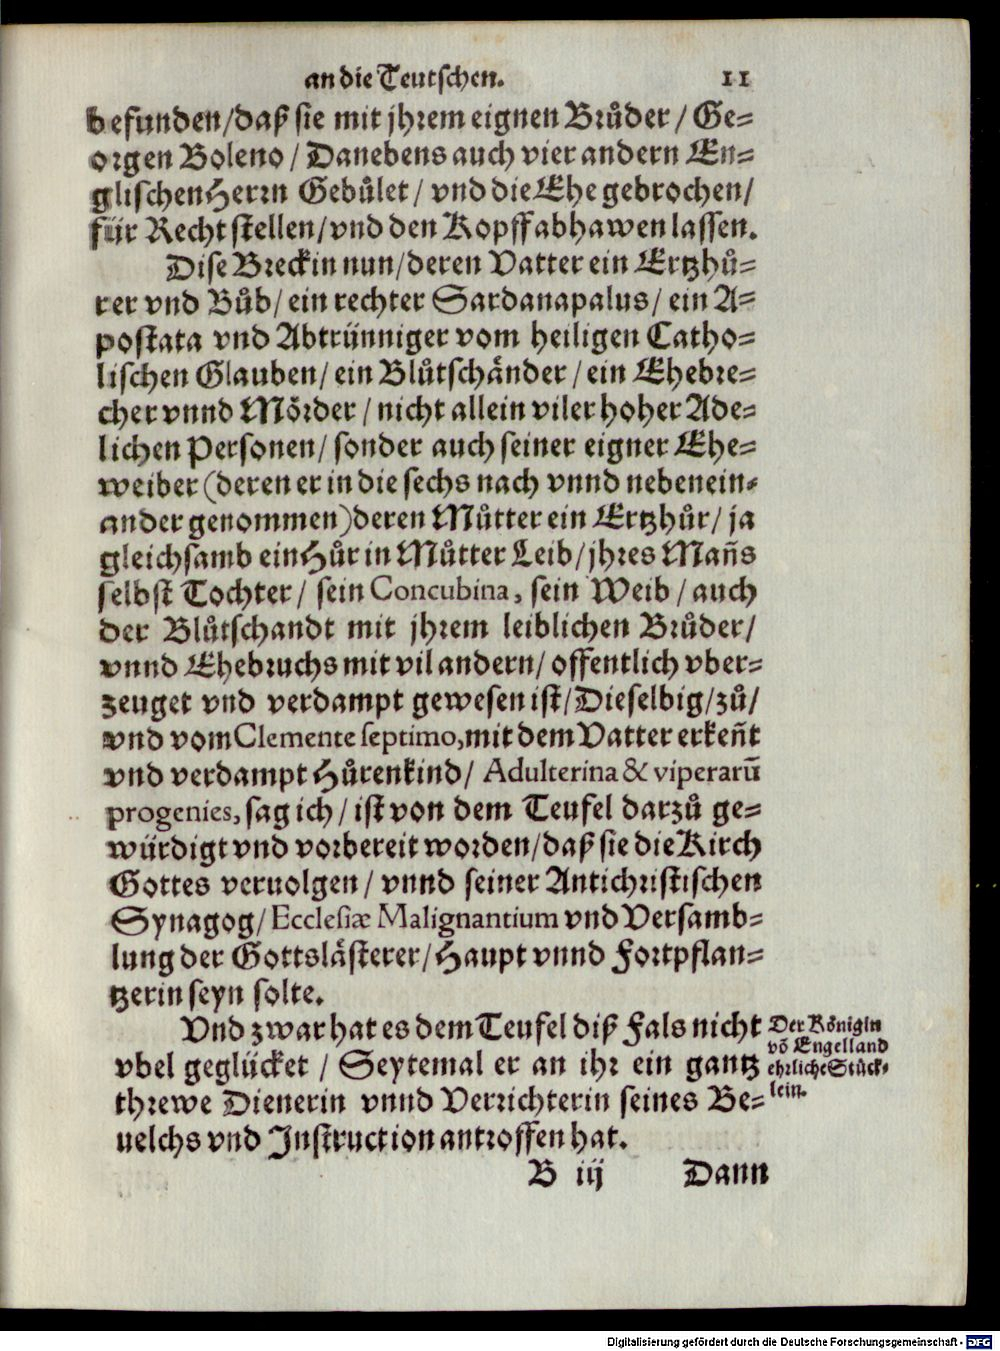 an die Teutschen. 11
befunden/daß sie mit jhrem eignen Brůder/ Ge=
orgen Boleno/ Danebens auch vier andern En=
glischen Herrn Gebůlet/ vnd die Ehe gebrochen/
für Recht stellen/vnd den Kopff abhawen lassen.
Dise Breckin nun/deren Vatter ein Ertzhů=
rer vnd Bůb/ ein rechter Sardanapalus/ ein A=
postata vnd Abtrünniger vom heiligen Catho=
lischen Glauben/ ein Blůtschänder/ ein Ehebre=
cher vnnd Mörder/ nicht allein viler hoher Ade=
lichen Personen/ sonder auch seiner eigner Ehe=
weiber (deren er in die sechs nach vnnd nebenein=
ander genommen) deren Můtter ein Ertzhůr/ ja
gleichsamb ein Hůr in Můtter Leib/ jhres Mañs
selbst Tochter/ sein Concubina, sein Weib/ auch
der Blůtschandt mit jhrem leiblichen Brůder/
vnnd Ehebruchs mit vil andern/ offentlich vber=
zeuget vnd verdampt gewesen ist/ Dieselbig/ zů/
vnd vom Clemente septimo, mit dem Vatter erkeñt
vnd verdampt Hůrenkind/ Adulterina & viperarū
progenies, sag ich/ ist von dem Teufel darzů ge=
würdigt vnd vorbereit worden/daß sie die Kirch
Gottes veruolgen/ vnnd seiner Antichristischen
Synagog/ Ecclesiæ Malignantium vnd Versamb=
lung der Gottslästerer/ Haupt vnnd Fortpflan=
tzerin seyn solte.
Vnd zwar hat es dem Teufel diß Fals nicht
vbel geglücket/ Seytemal er an ihr ein gantz
threwe Dienerin vnnd Verrichterin seines Be=
uelchs vnd Instruction antroffen hat.
Der Königin
vō Engelland
ehrliche Stück=
lein.
B iij Dann
Digitalisierung gefördert durch die Deutsche Forschungsgemeinschaft - DFG